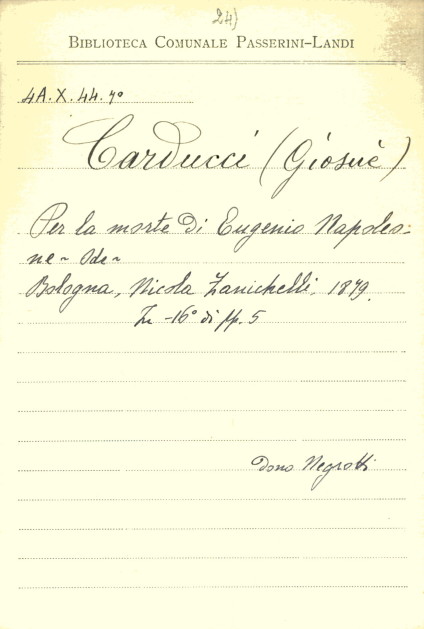 24)
BIBLIOTECA COMUNALE PASSERINI-LANDI
4A.X.44.7º
Carducci (Giosuè)
Per la morte di Eugenio Napoleo-
ne ~ Ode ~
Bologna, Nicola Zanichelli, 1879.
In -16º di pp. 5
Dono Negrotti